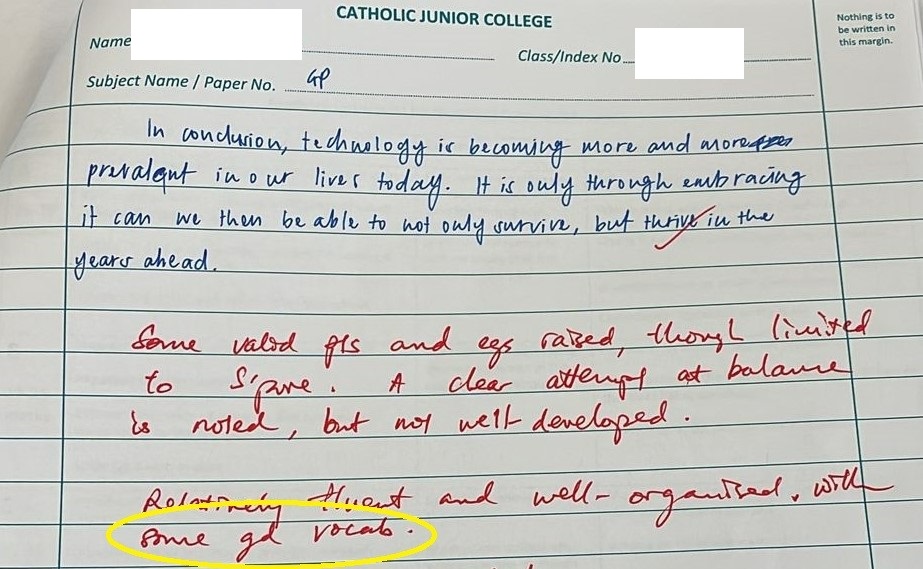 CATHOLIC JUNIOR COLLEGE
Nothing is to
be written in
this margin.
Name
Class/Index No
Subject Name / Paper No. GP
In conclusion, technology is becoming more and more
prevalent in our lives today. It is only through embracing
it can we then be able to not only survive, but thrive in the
years ahead.
Some valid pts and egs raised, though limited
to S'pore. A clear attempt at balance
is noted, but not well developed.
Relatively fluent and well-organised, with
some gd vocab.